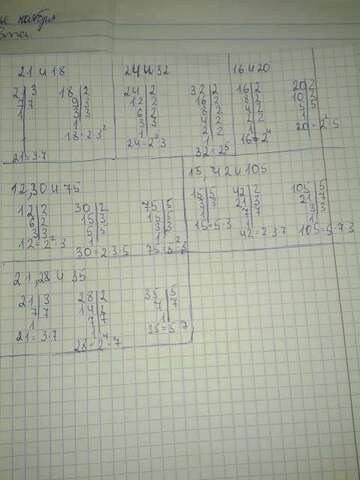 ноября
21 и 18
21|3
7|7
1
21=3·7
18|2
9|3
3|3
1
18=2·3²
24 и 32
24|2
12|2
6|2
3|3
1
24=2³·3
32|2
16|2
8|2
4|2
2|2
1
32=2⁵
16 и 20
16|2
8|2
4|2
2|2
1
16=2⁴
20|2
10|2
5|5
1
20=2²·5
12,30 и 75
12|2
6|2
3|3
1
12=2²·3
30|2
15|3
5|5
1
30=2·3·5
75|5
15|5
3|3
1
15, 42 и 105
15|5
3|3
1
15=5·3
42|2
21|3
7|7
1
42=2·3·7
105|5
21|7
3|3
1
105=5·7·3
21,28 и 35
21|3
7|7
1
21=3·7
28|2
14|2
7|7
1
28=2²·7
35|5
7|7
1
35=5·7